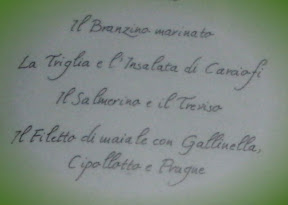 Il Branzino marinato
La Triglia e l'Insalata di Carciofi
Il Salmerino e il Treviso
Il Filetto di maiale con Gallinella,
Cipollotto e Prugne